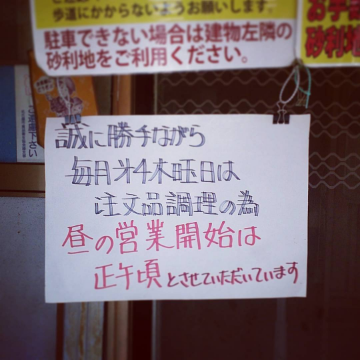 歩道にかからないようお願いします。
駐車できない場合は建物左隣の
砂利地をご利用ください。
お手
砂利地
誠に勝手ながら
毎月第4木曜日は
注文品調理の為
昼の営業開始は
正午頃とさせていただいています